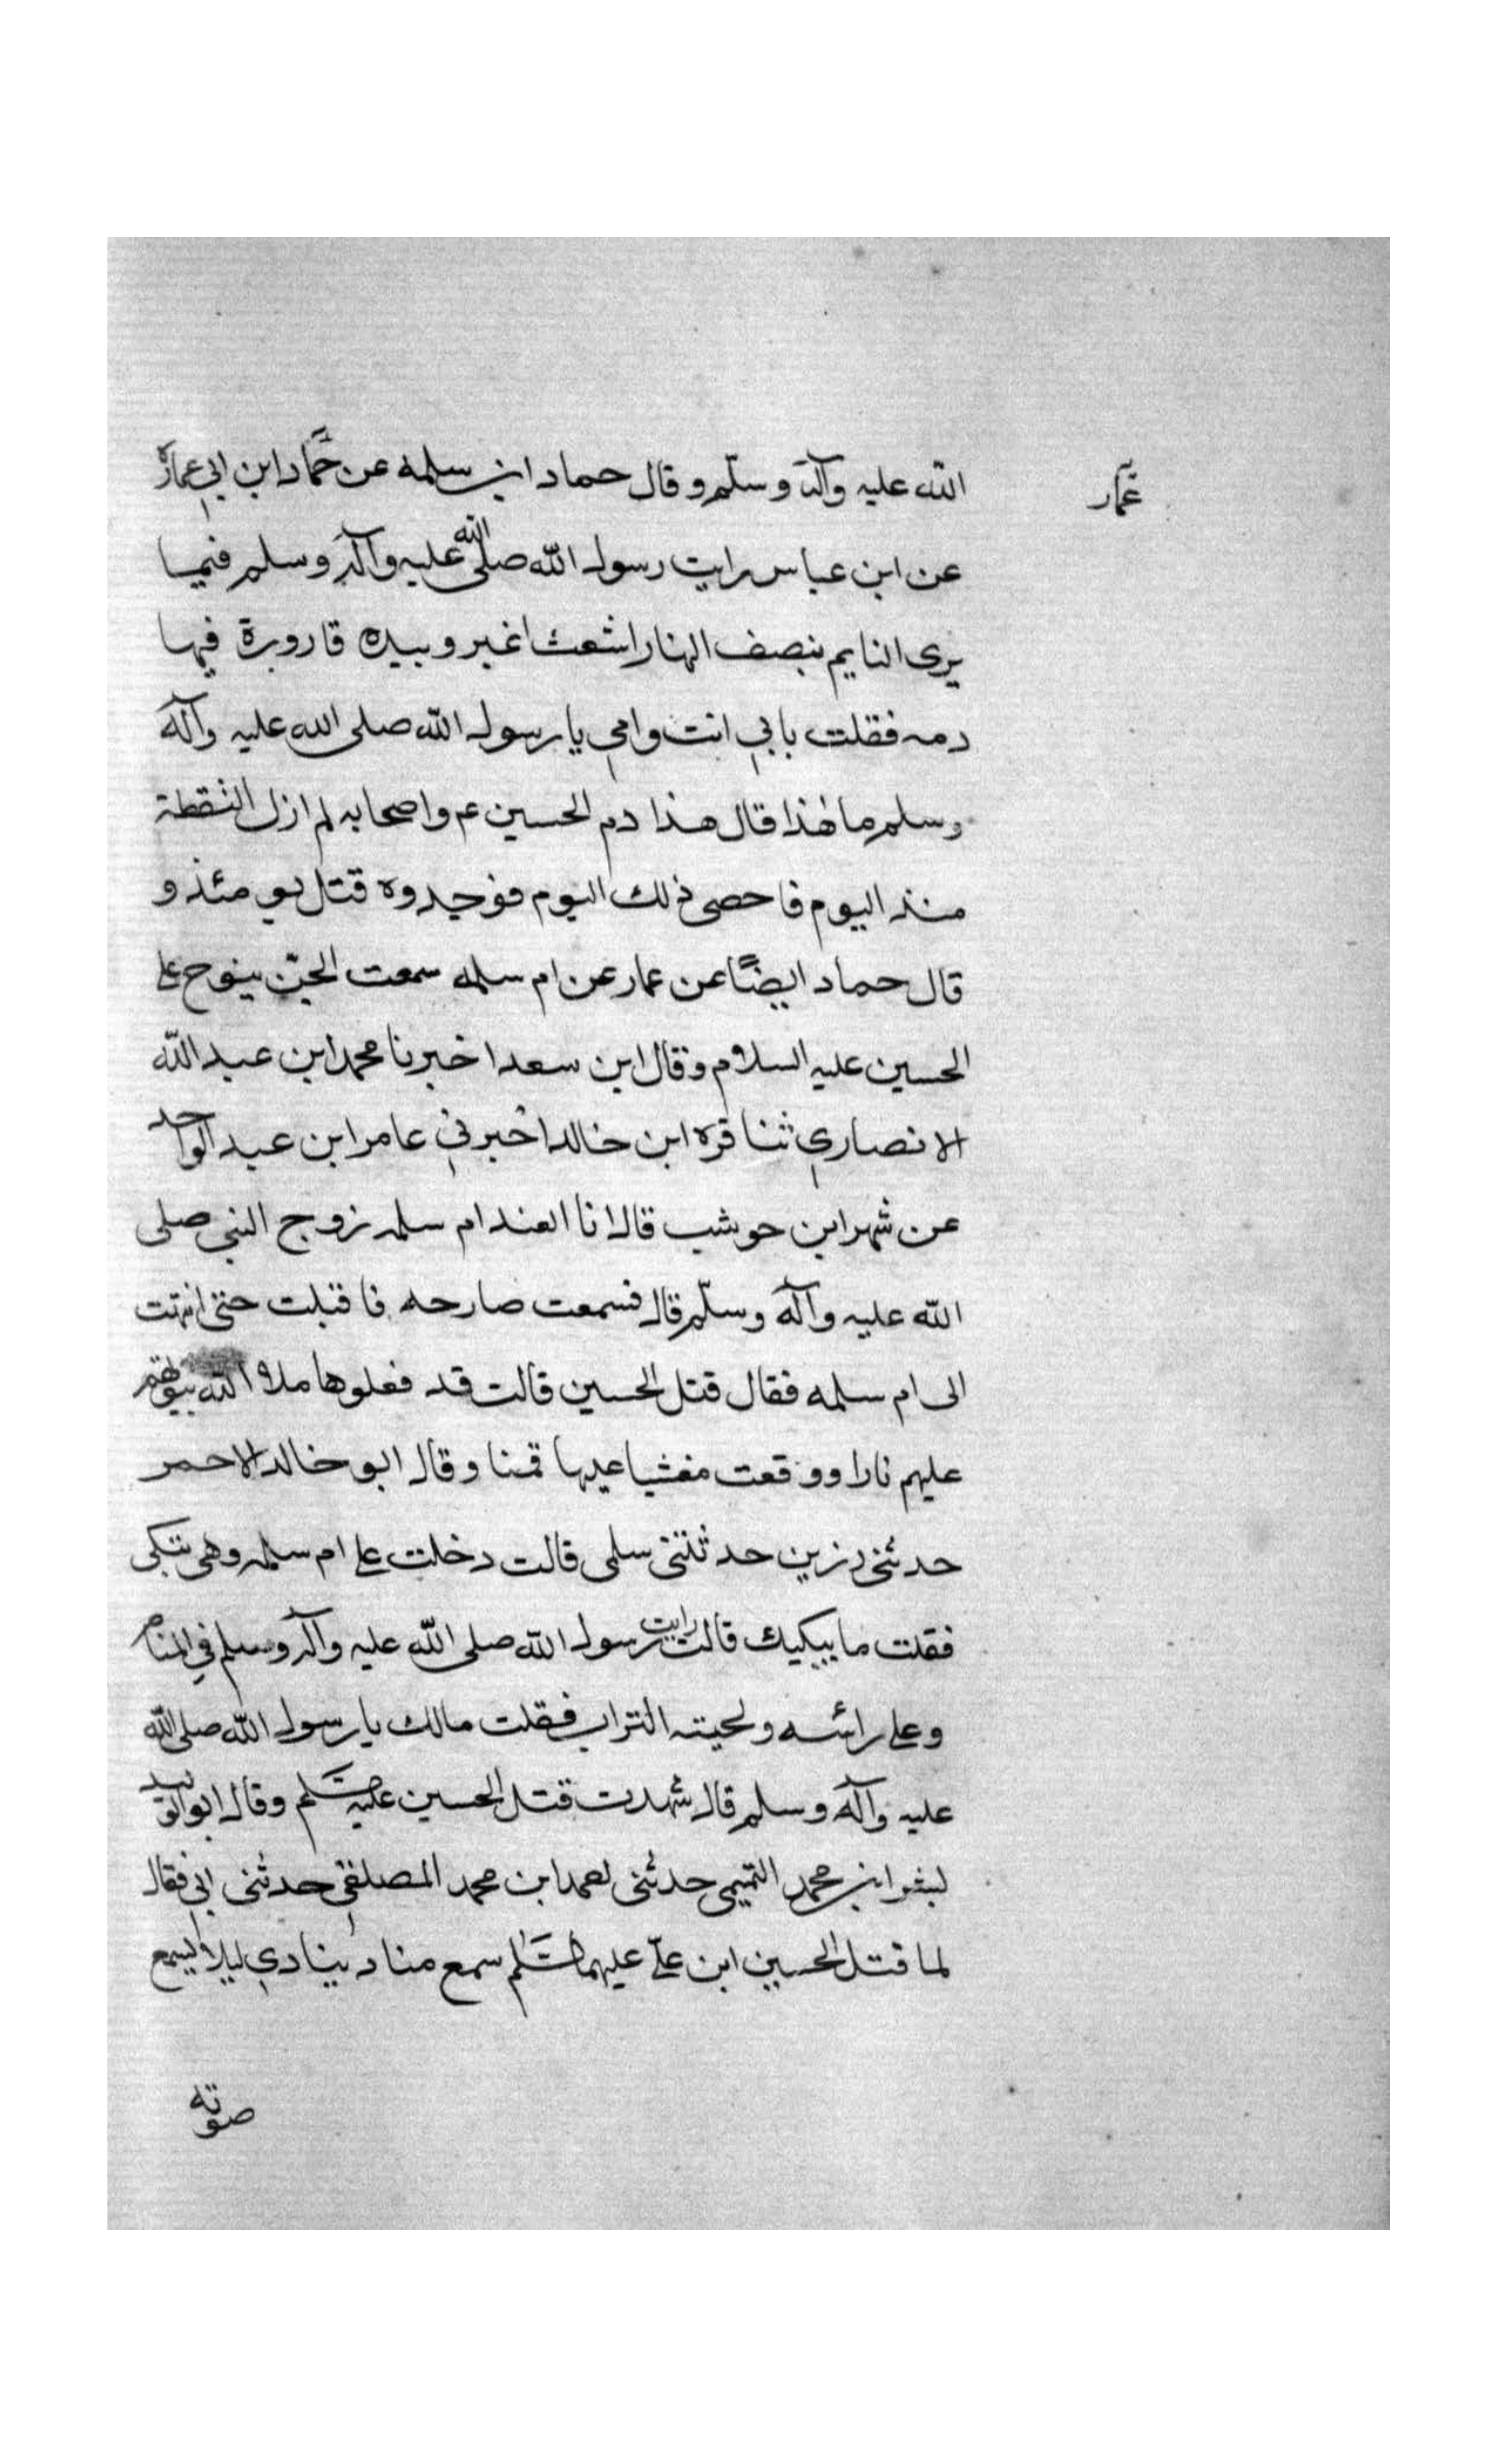 الله عليه وآله وسلّم وقال حماد ابن سلمه عن حمّاد ابن ابي عمارة
عمّار
عن ابن عباس رايت رسول الله صلى الله عليه وآله وسلم فيما
يرى النايم بنصف النهار اشعث اغبر وبيده قارورة فيها
دمه فقلت بابي انت وامي يا رسول الله صلى الله عليه وآله
وسلم ما هذا قال هذا دم الحسين عم واصحابه لم ازل القطة
منذ اليوم فاحصى ذلك اليوم فوجدوه قتل يومئذ و
قال حماد ايضًا عن عمار عن ام سلمه سمعت الجنّ ينوح على
الحسين عليه السلام وقال ابن سعد اخبرنا محمد ابن عبد الله
الانصاري ثنا قره ابن خالد اخبرني عامر ابن عبد الواحد
عن شهر ابن حوشب قال انا لعند ام سلمه زوج النبي صلى
الله عليه وآله وسلّم قال فسمعت صارحه فاقبلت حتى انتهت
الى ام سلمه فقال قتل الحسين قالت قد فعلوها ملاء الله بيوتهم
عليهم نارا ووقعت مغشيا عيها قمنا وقال ابو خالد الاحمر
حدثنى رزين حدثتنى سلمى قالت دخلت على ام سلمه وهى تبكى
فقلت ما يبكيك قالت رايت رسول الله صلى الله عليه وآله وسلم في المنام
وعلى رائسه ولحيته التراب فقلت مالك يا رسول الله صلى الله
عليه وآله وسلم قال شهدت قتل الحسين عليه السلم وقال ابو الوليد
لبشر ابن محمد التميمى حدثنى احمد ابن محمد المصلفي حدثنى ابي فقال
لما قتل الحسين ابن علىّ عليهما السّلم سمع مناد ينادي ليلا يسمع
صوته